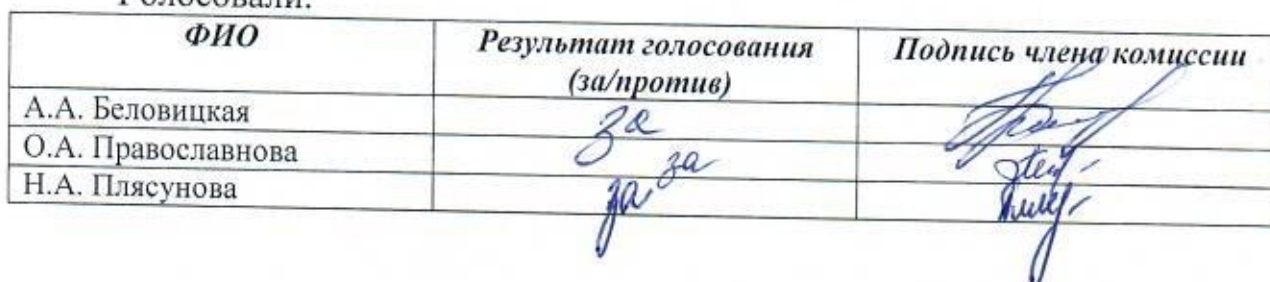 Голосовали:
ФИО Результат голосования (за/против) Подпись члена комиссии
А.А. Беловицкая за
О.А. Православнова за
Н.А. Плясунова за